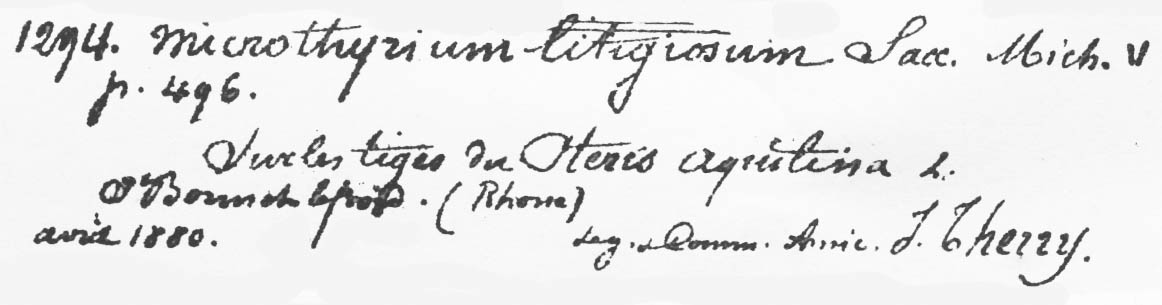 1294. Microthyrium litigiosum Sacc. Mich. V
p. 496.
Sur les tiges du Pteris aquilina L.
Bonnet le froid. (Rhone)
avril 1880. Leg. & Comm. Amic. J. Therry.